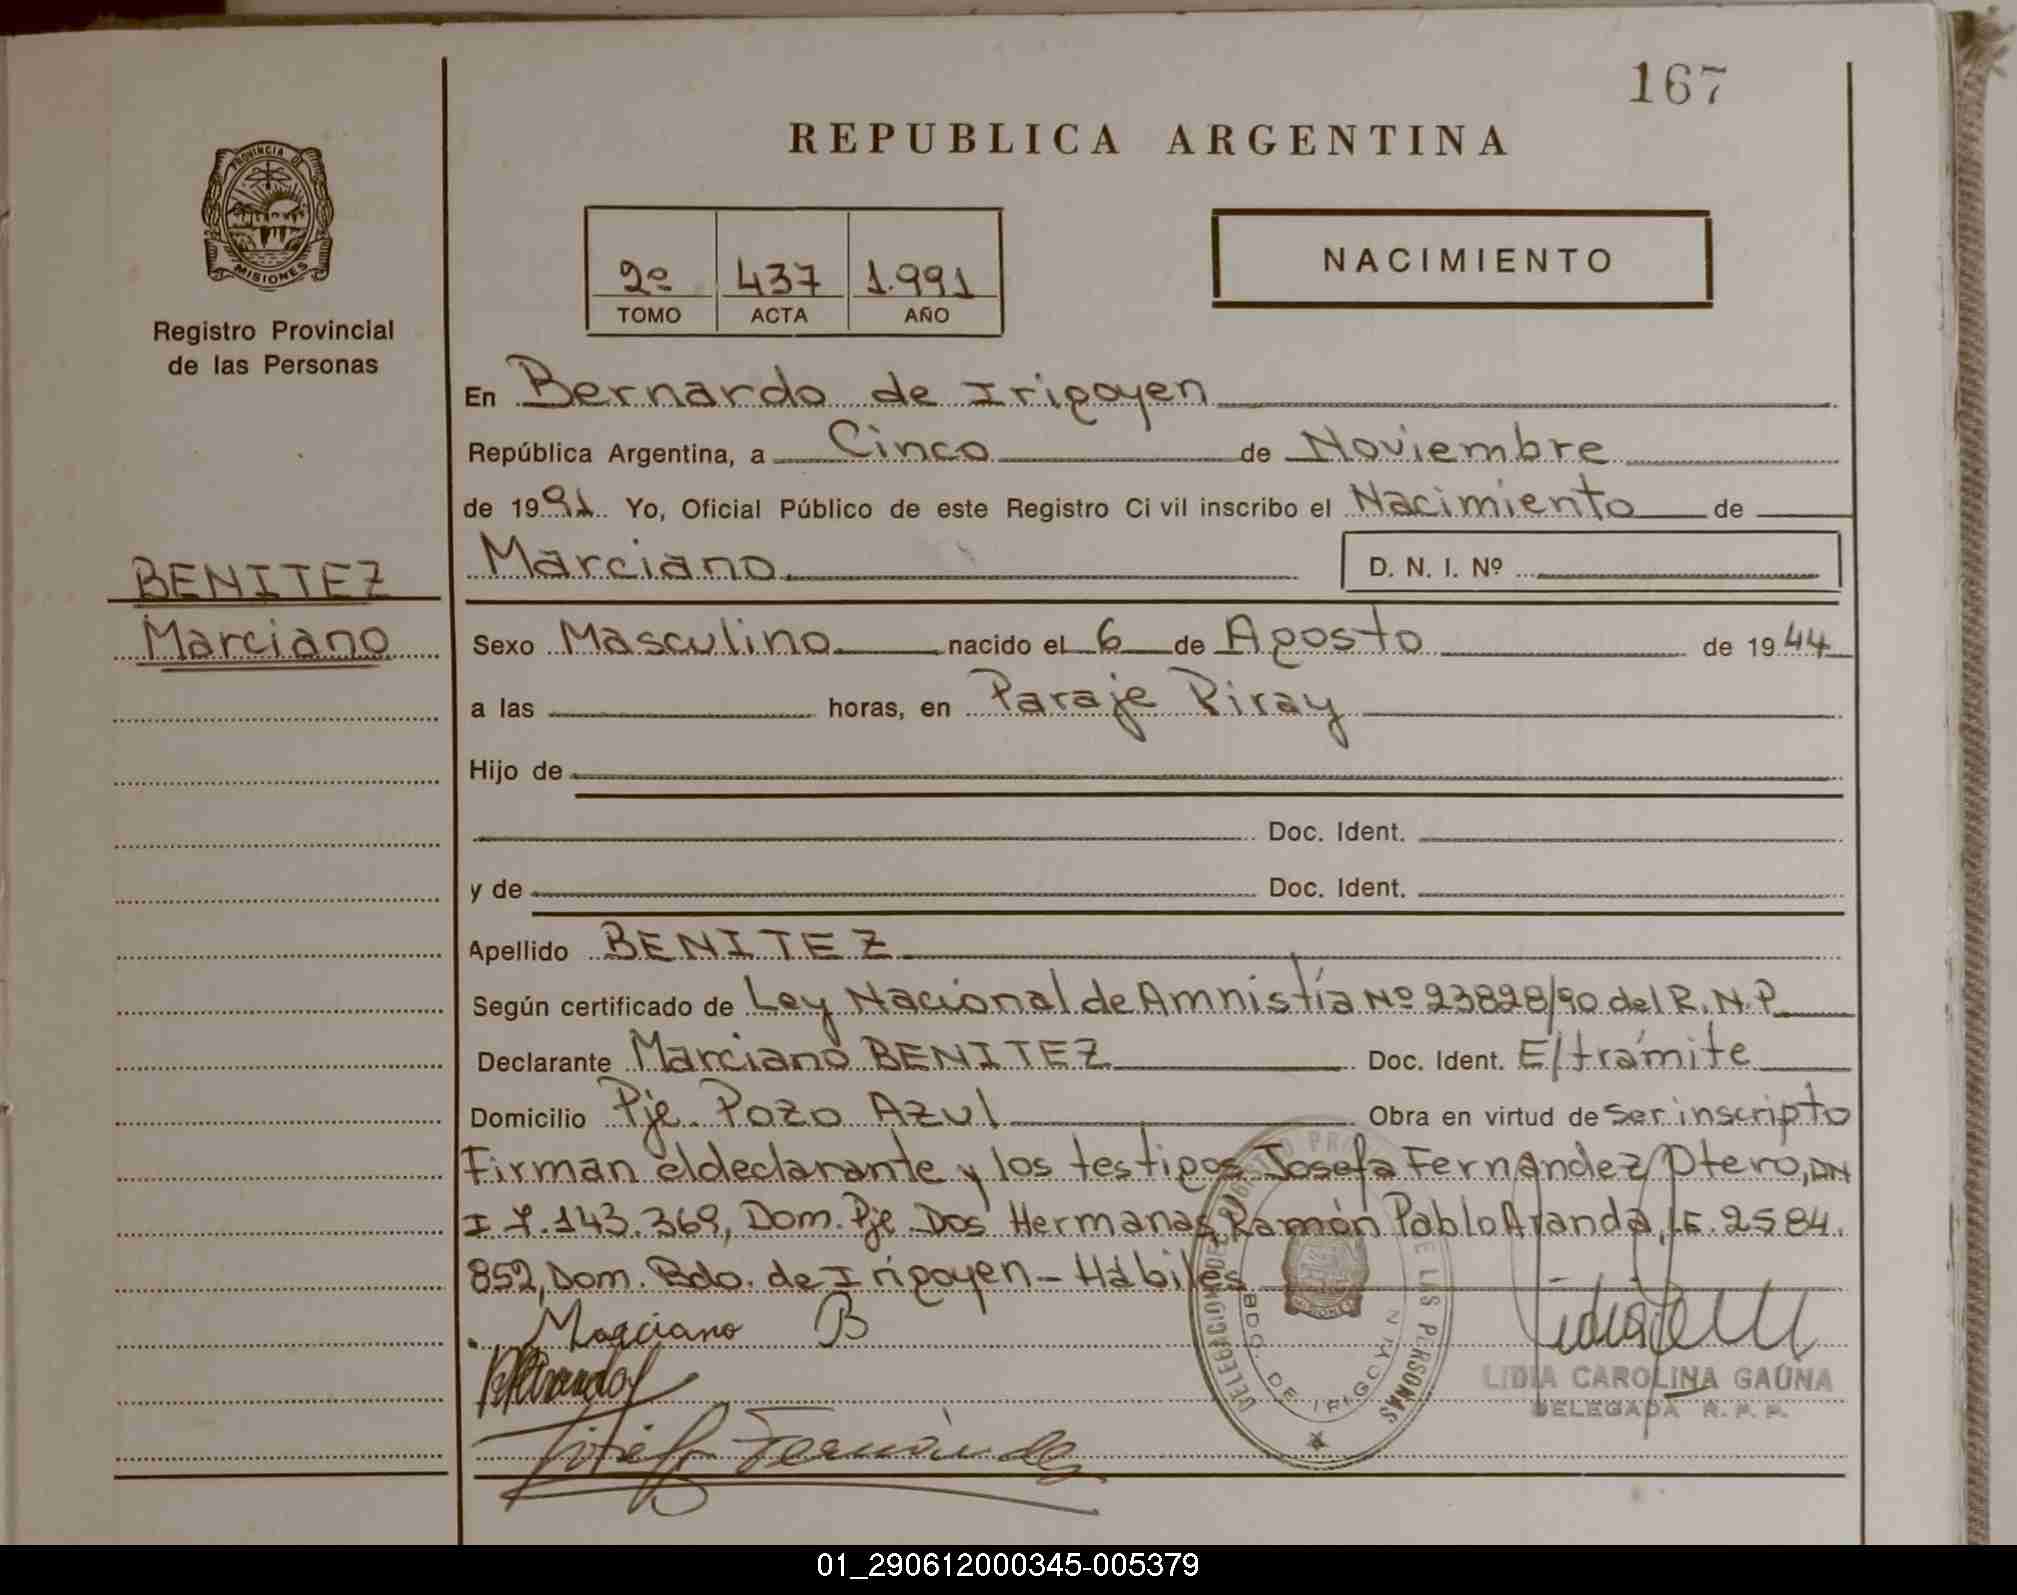 167
REPUBLICA ARGENTINA
PROVINCIA DE
MISIONES
Registro Provincial
de las Personas
2º 437 1.991
TOMO ACTA AÑO
NACIMIENTO
En Bernardo de Irigoyen
República Argentina, a Cinco de Noviembre
de 1991 Yo, Oficial Público de este Registro Civil inscribo el Nacimiento de
Marciano D. N. I. Nº
BENITEZ
Marciano
Sexo Masculino nacido el 6 de Agosto de 1944
a las horas, en Paraje Piray
Hijo de
Doc. Ident.
y de Doc. Ident.
Apellido BENITEZ
Según certificado de Ley Nacional de Amnistía Nº 23828/90 del R.N.P
Declarante Marciano BENITEZ Doc. Ident. E/trámite
Domicilio Pje. Pozo Azul Obra en virtud de ser inscripto
Firman el declarante y los testigos Josefa Fernandez Otero, DN
I 7.143.369, Dom. Pje Dos Hermanas, Ramón Pablo Aranda, LE. 2584.
852, Dom. Bdo. de Irigoyen - Hábiles
Marciano B
Josefa Fernandez
DELEGACION DEL REGISTRO PROVINCIAL DE LAS PERSONAS
BDO. DE IRIGOYEN
MISIONES
LIDIA CAROLINA GAUNA
DELEGADA R. P. P.
01_290612000345-005379